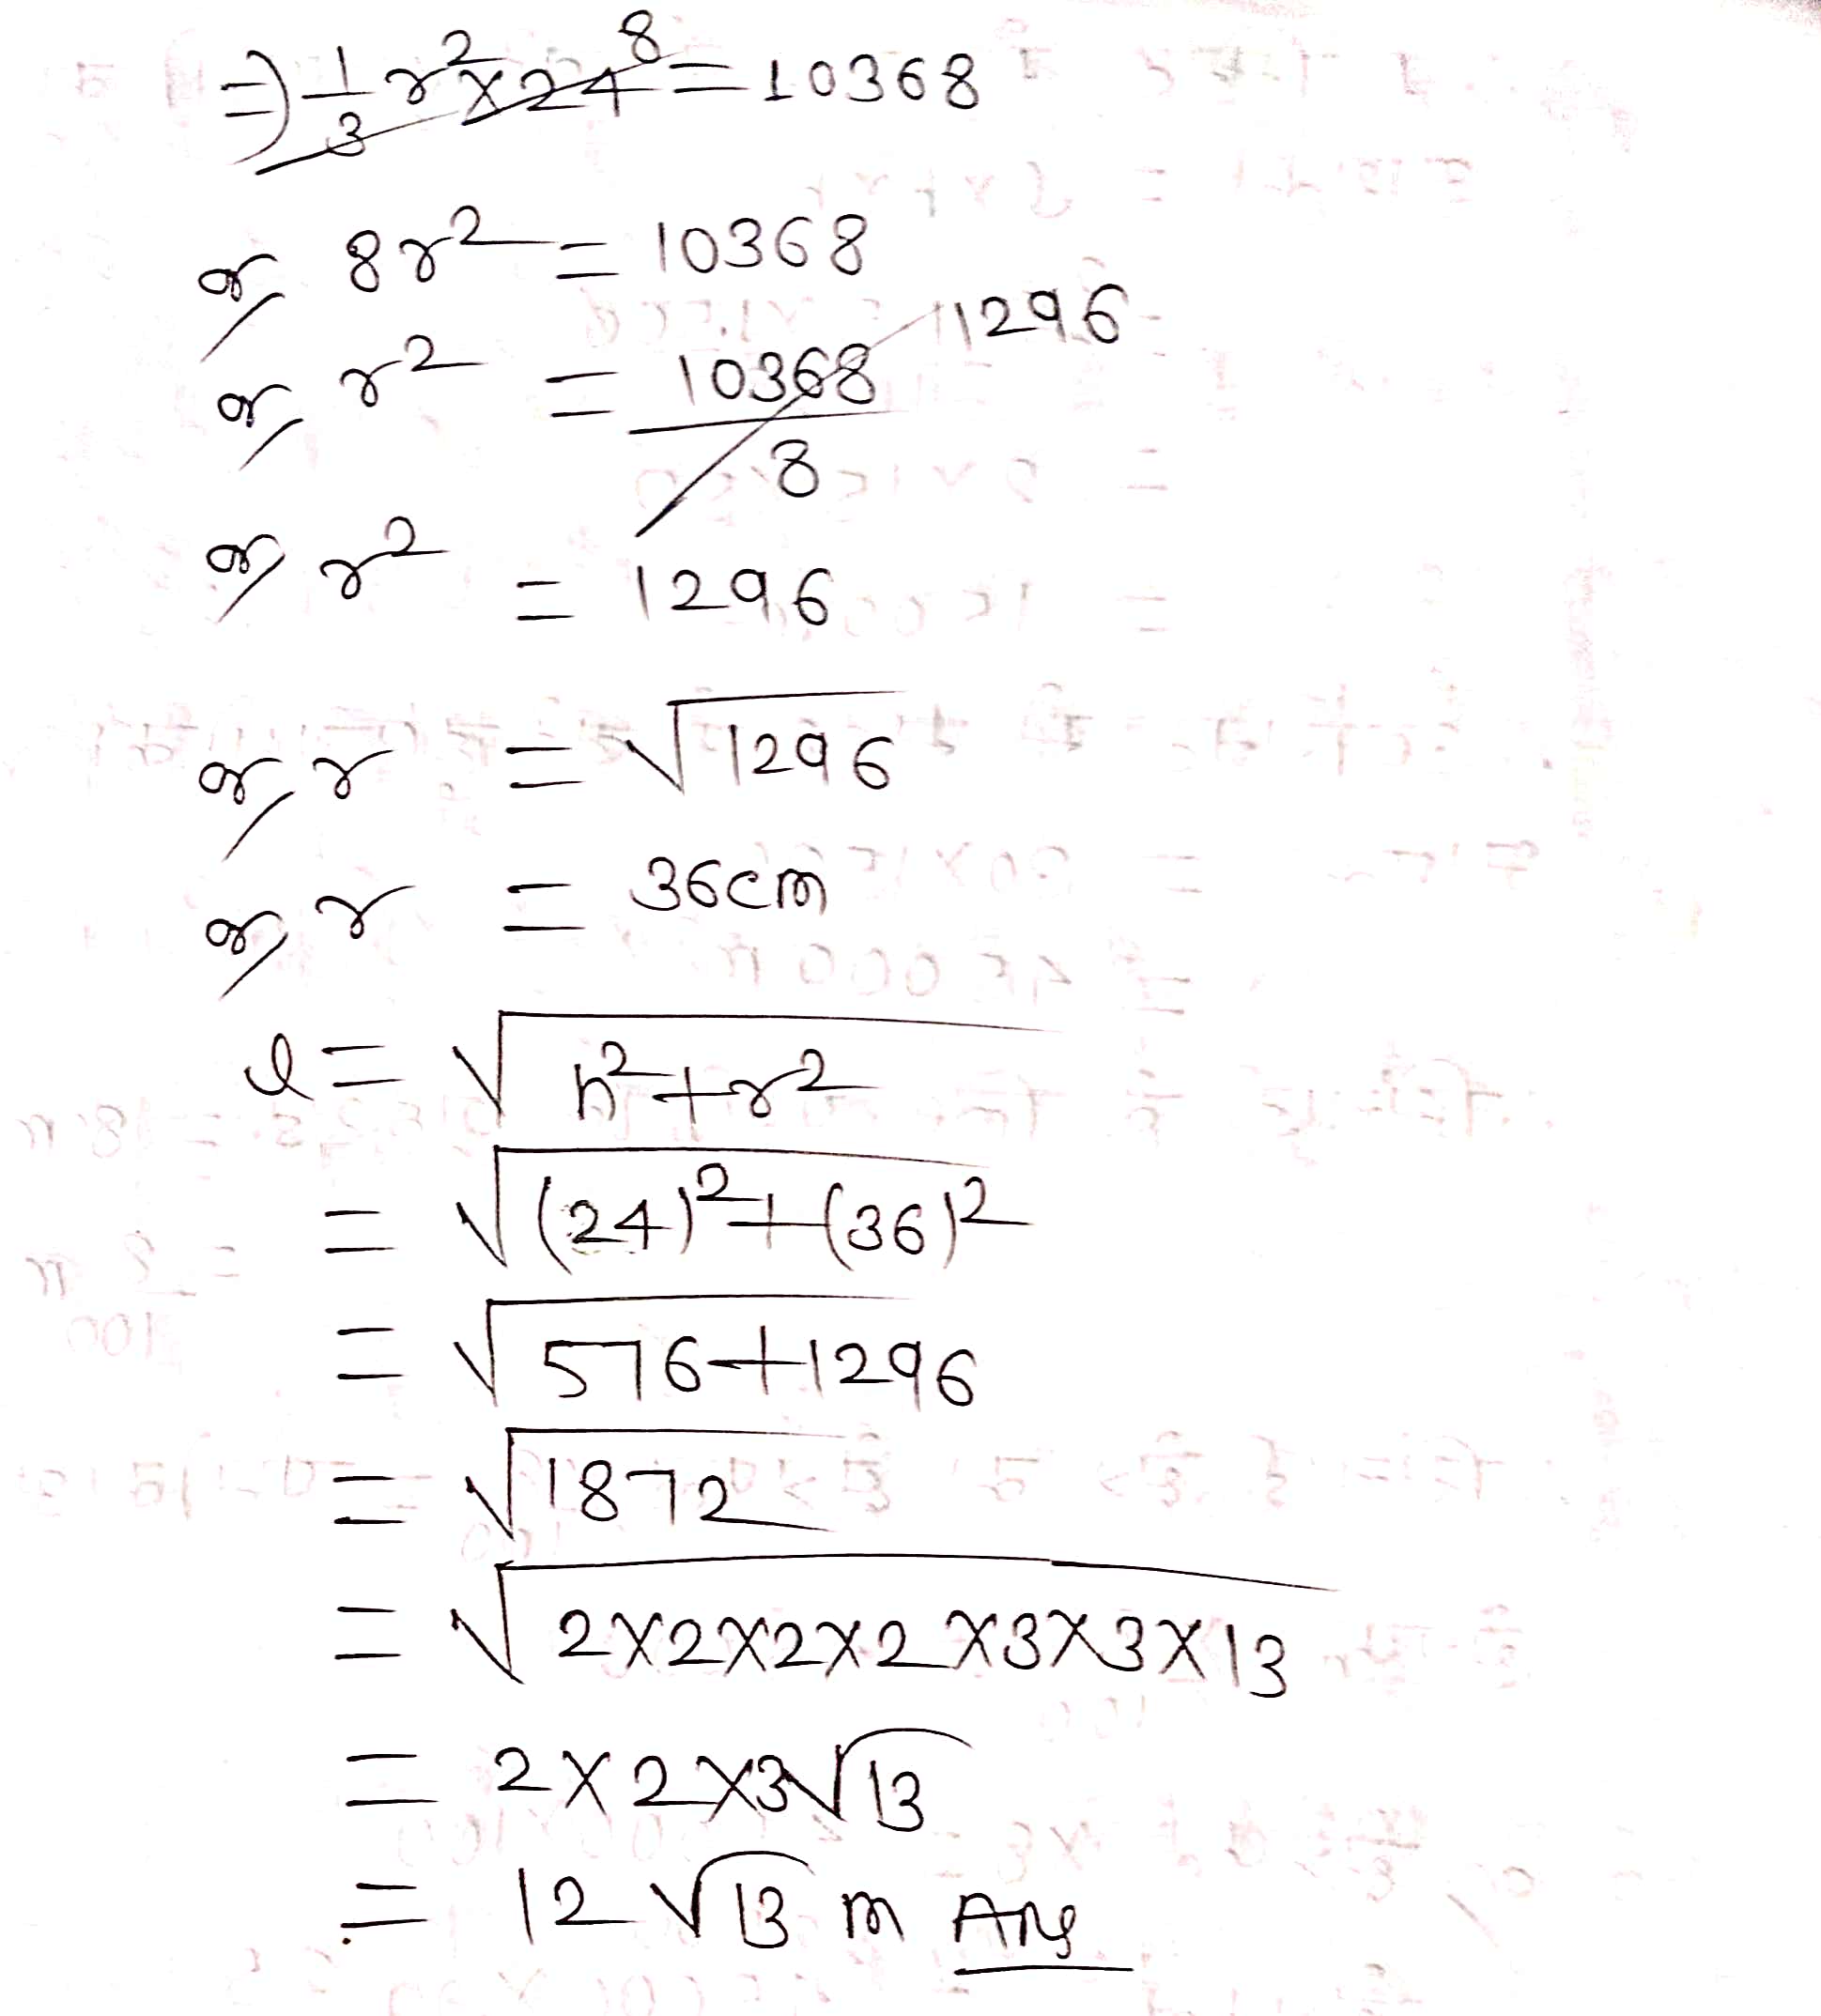 ⇒ 1/3 r² × 24 8 = 10368
or, 8r² = 10368
or, r² = 10368/8 1296
or, r² = 1296
or, r = √1296
or, r = 36cm
l = √h²+r²
= √(24)²+(36)²
= √576+1296
= √1872
= √2×2×2×2×3×3×13
= 2×2×3√13
= 12√13 m Ans